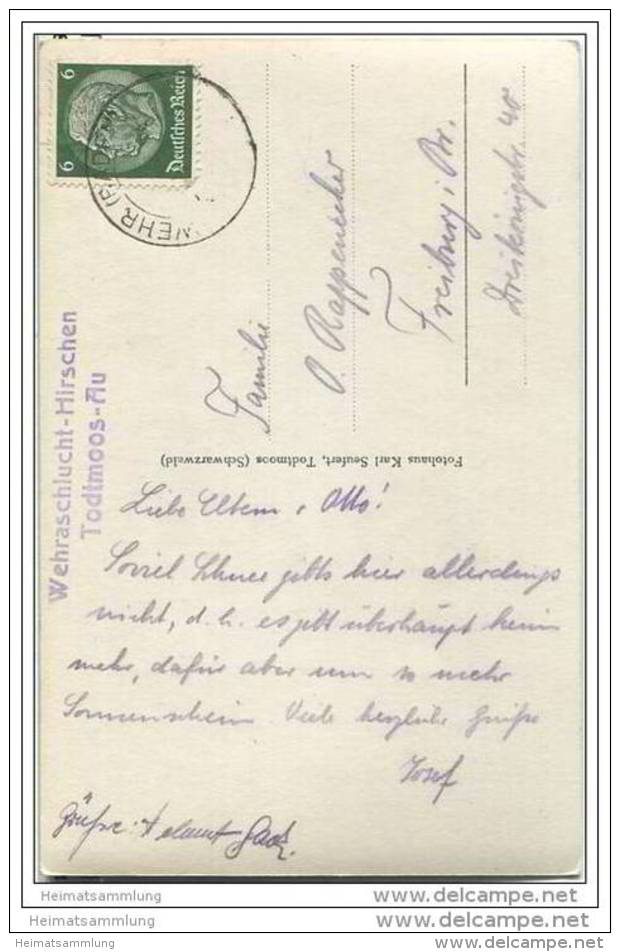 6 Deutsches Reich 6
WEHR (BADEN)
Wehraschlucht-Hirschen
Todtmoos-Au
Familie
O. Rappenecker
Freiburg i. Br.
Dreikönigstr. 40
Fotohaus Karl Seufert, Todtmoos (Schwarzwald)
Liebe Eltern u. Otto!
Soviel Schnee gibts hier allerdings
nicht, d. h. es gibt überhaupt keinen
mehr, dafür aber um so mehr
Sonnenschein. Viele herzliche Grüße
Josef
Grüße: Helmut
Heimatsammlung www.delcampe.net
Heimatsammlung www.delcampe.net
Heimatsammlung www.delcampe.net